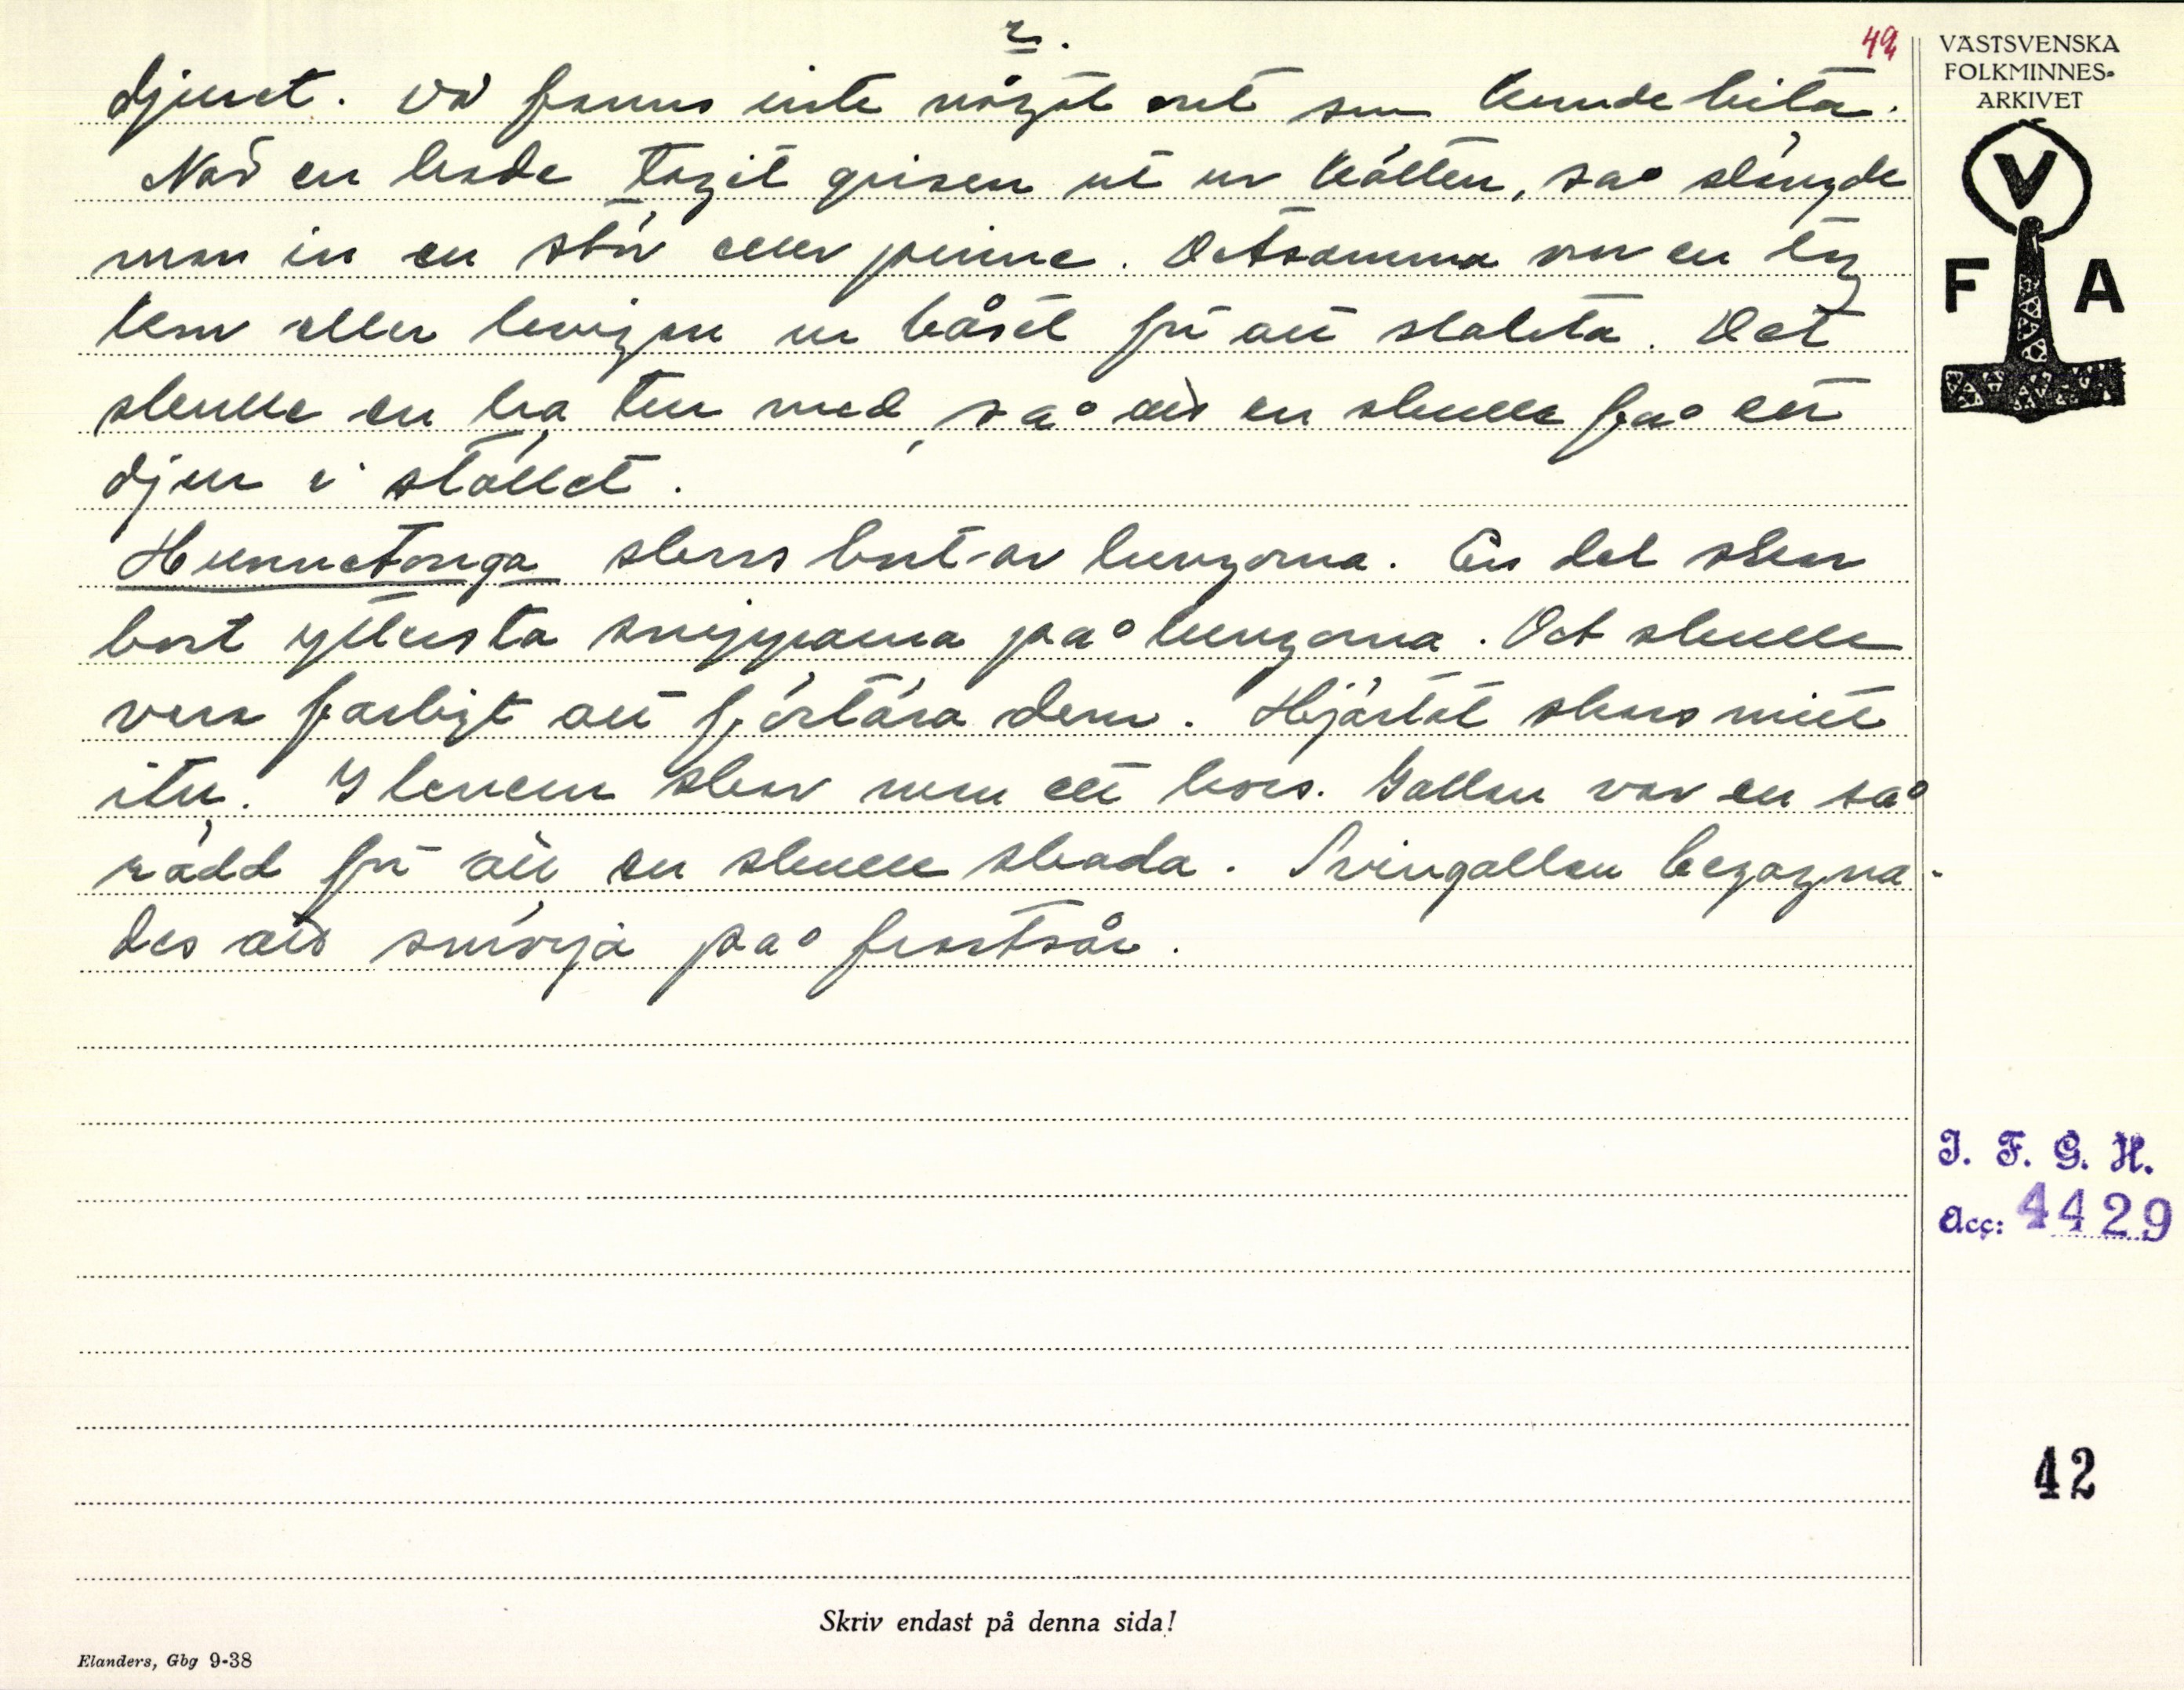 2.
49
VÄSTSVENSKA
FOLKMINNES-
ARKIVET
V
F A
djuret. Då fanns inte något ont som kunde bita.
När en hade tagit grisen ut ur kätten, så slängde
man in en stör eller pinne. Detsamma när en tog
kon eller kvigan ur båset för att slakta. Det
skulle en ha ten med, så att en skulle få ett
djur i stället.
Hunnetonga skars bort av lungorna. En del skar
bort yttersta snipparna på lungorna. Det skulle
vara farligt att förtära dem. Hjärtat skars mitt
itu. I levern skar man ett kors. Gallan var en så
rädd för att en skulle skada. Svingallan begagna-
des att smörja på frostsår.
I. F. G. H.
Acc: 4429
42
Skriv endast på denna sida!
Elanders, Gbg 9-38